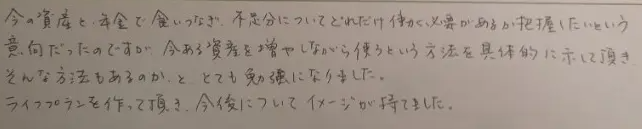 今の資産と、年金で食いつなぎ、不足分についてどれだけ働く必要があるか把握したいという
意向だったのですが、今ある資産を増やしながら使うという方法を具体的に示して頂き、
そんな方法もあるのか、と、とても勉強になりました。
ライフプランを作って頂き、今後についてイメージが持てました。